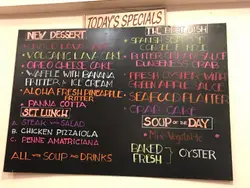 TODAY'S SPECIALS
NEW DESSERT
LAVA CAKE
VOLCANO LAVA CAKE
OREO CHEESE CAKE
WAFFLE WITH BANANA
FRITTER & ICE CREAM
ALOHA FRESH PINEAPPLE
FRITTER
PANNA COTTA
SET LUNCH
A. STEAK SALAD
B. CHICKEN PIZZAIOLA
C. PENNE AMATRICIANA
ALL SOUP DRINKS
THE DISH
SPANISH
BUTTER
CRAB
FRESH OYSTER WITH
GREEN APPLE SALSA
SEAFOOD PLATTER
CRAB CAKE
SOUP OF THE DAY
Mix Vegetable
BAKED
FRESH
OYSTER